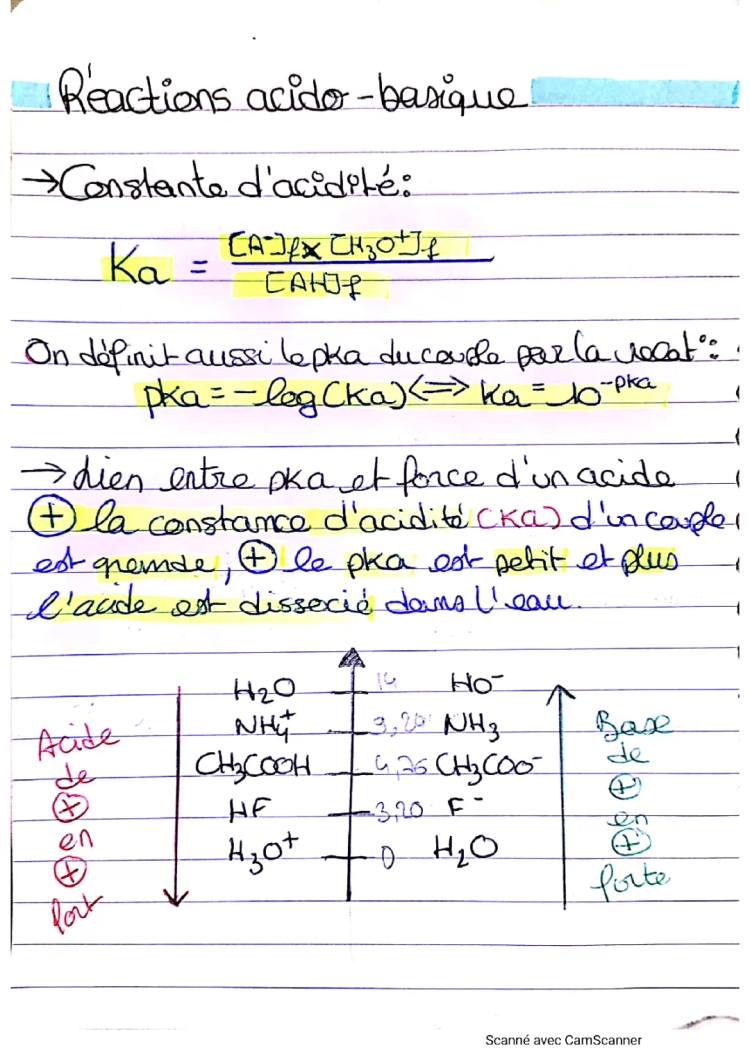 Réactions acido-basique
→Constante d'acidité:
Ka = [A⁻]f x [H₃O⁺]f / [AH]f
On définit aussi le pka du couple par la relat°:
pka = -log(Ka) <=> Ka = 10^-pka
→ Lien entre pka et force d'un acide
⊕ la constance d'acidité (Ka) d'un couple
est grande, ⊕ le pka est petit et plus
l'acide est dissocié dans l'eau.
H₂O 14 HO⁻
NH₄⁺ 9,20 NH₃
CH₃COOH 4,75 CH₃COO⁻
HF 3,20 F⁻
H₃O⁺ 0 H₂O
Acide
de
⊕
en
⊕
fort
Base
de
⊕
en
⊕
forte
Scanné avec CamScanner